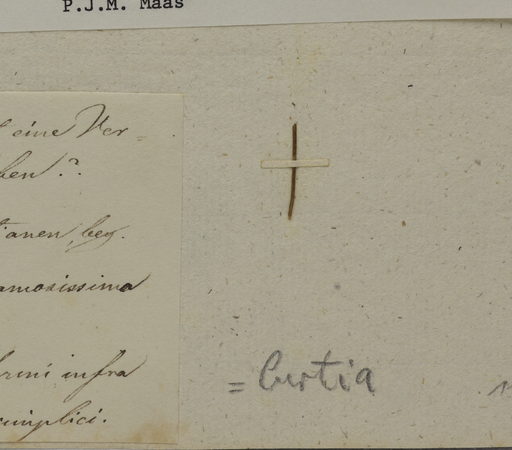 P.J.M. Maas
eine Ver-
ben??
tianen bey.
amosissima
infra
simplici.
= Curtia